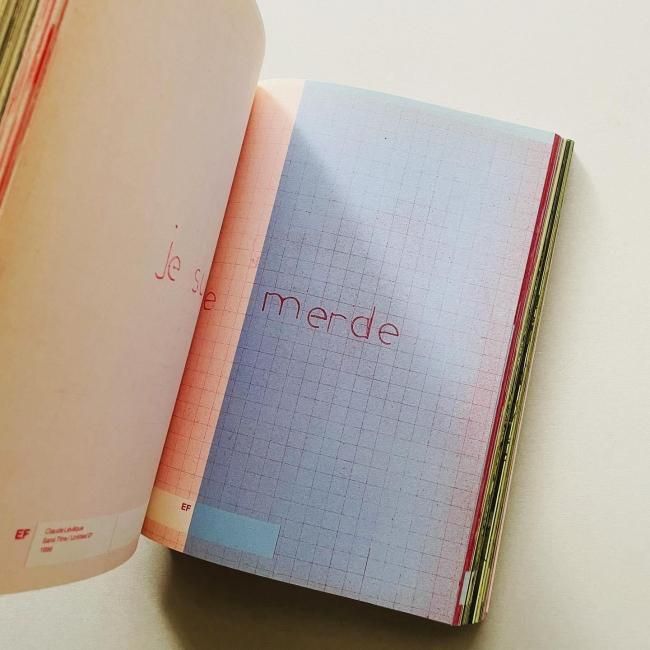 je su
e merde
EF
Claude Lévêque
Sans Titre / Untitled
1996
EF